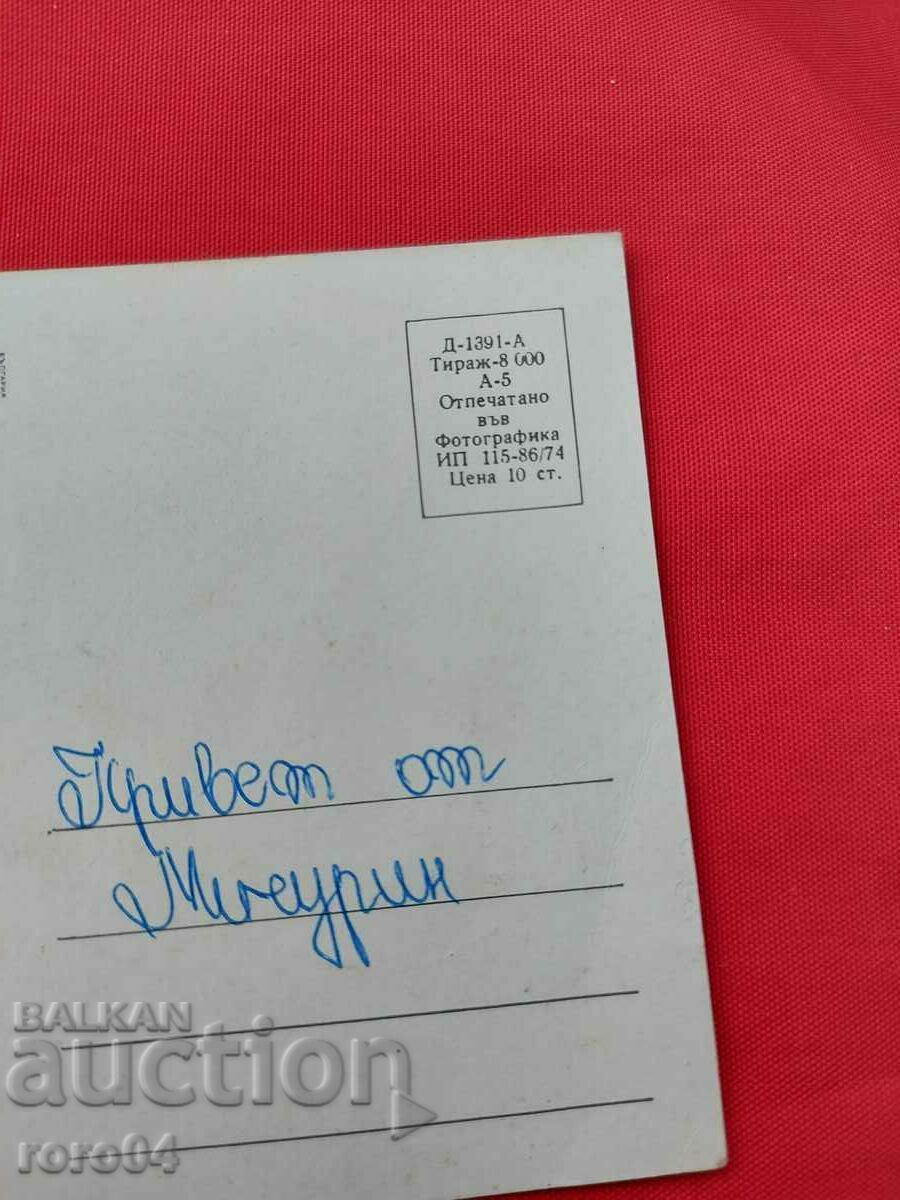 БЪЛГАРИЯ
Д-1391-А
Тираж-8 000
А-5
Отпечатано
във
Фотографика
ИП 115-86/74
Цена 10 ст.
Привет от
Мичурин
BALKAN
auction
roro04